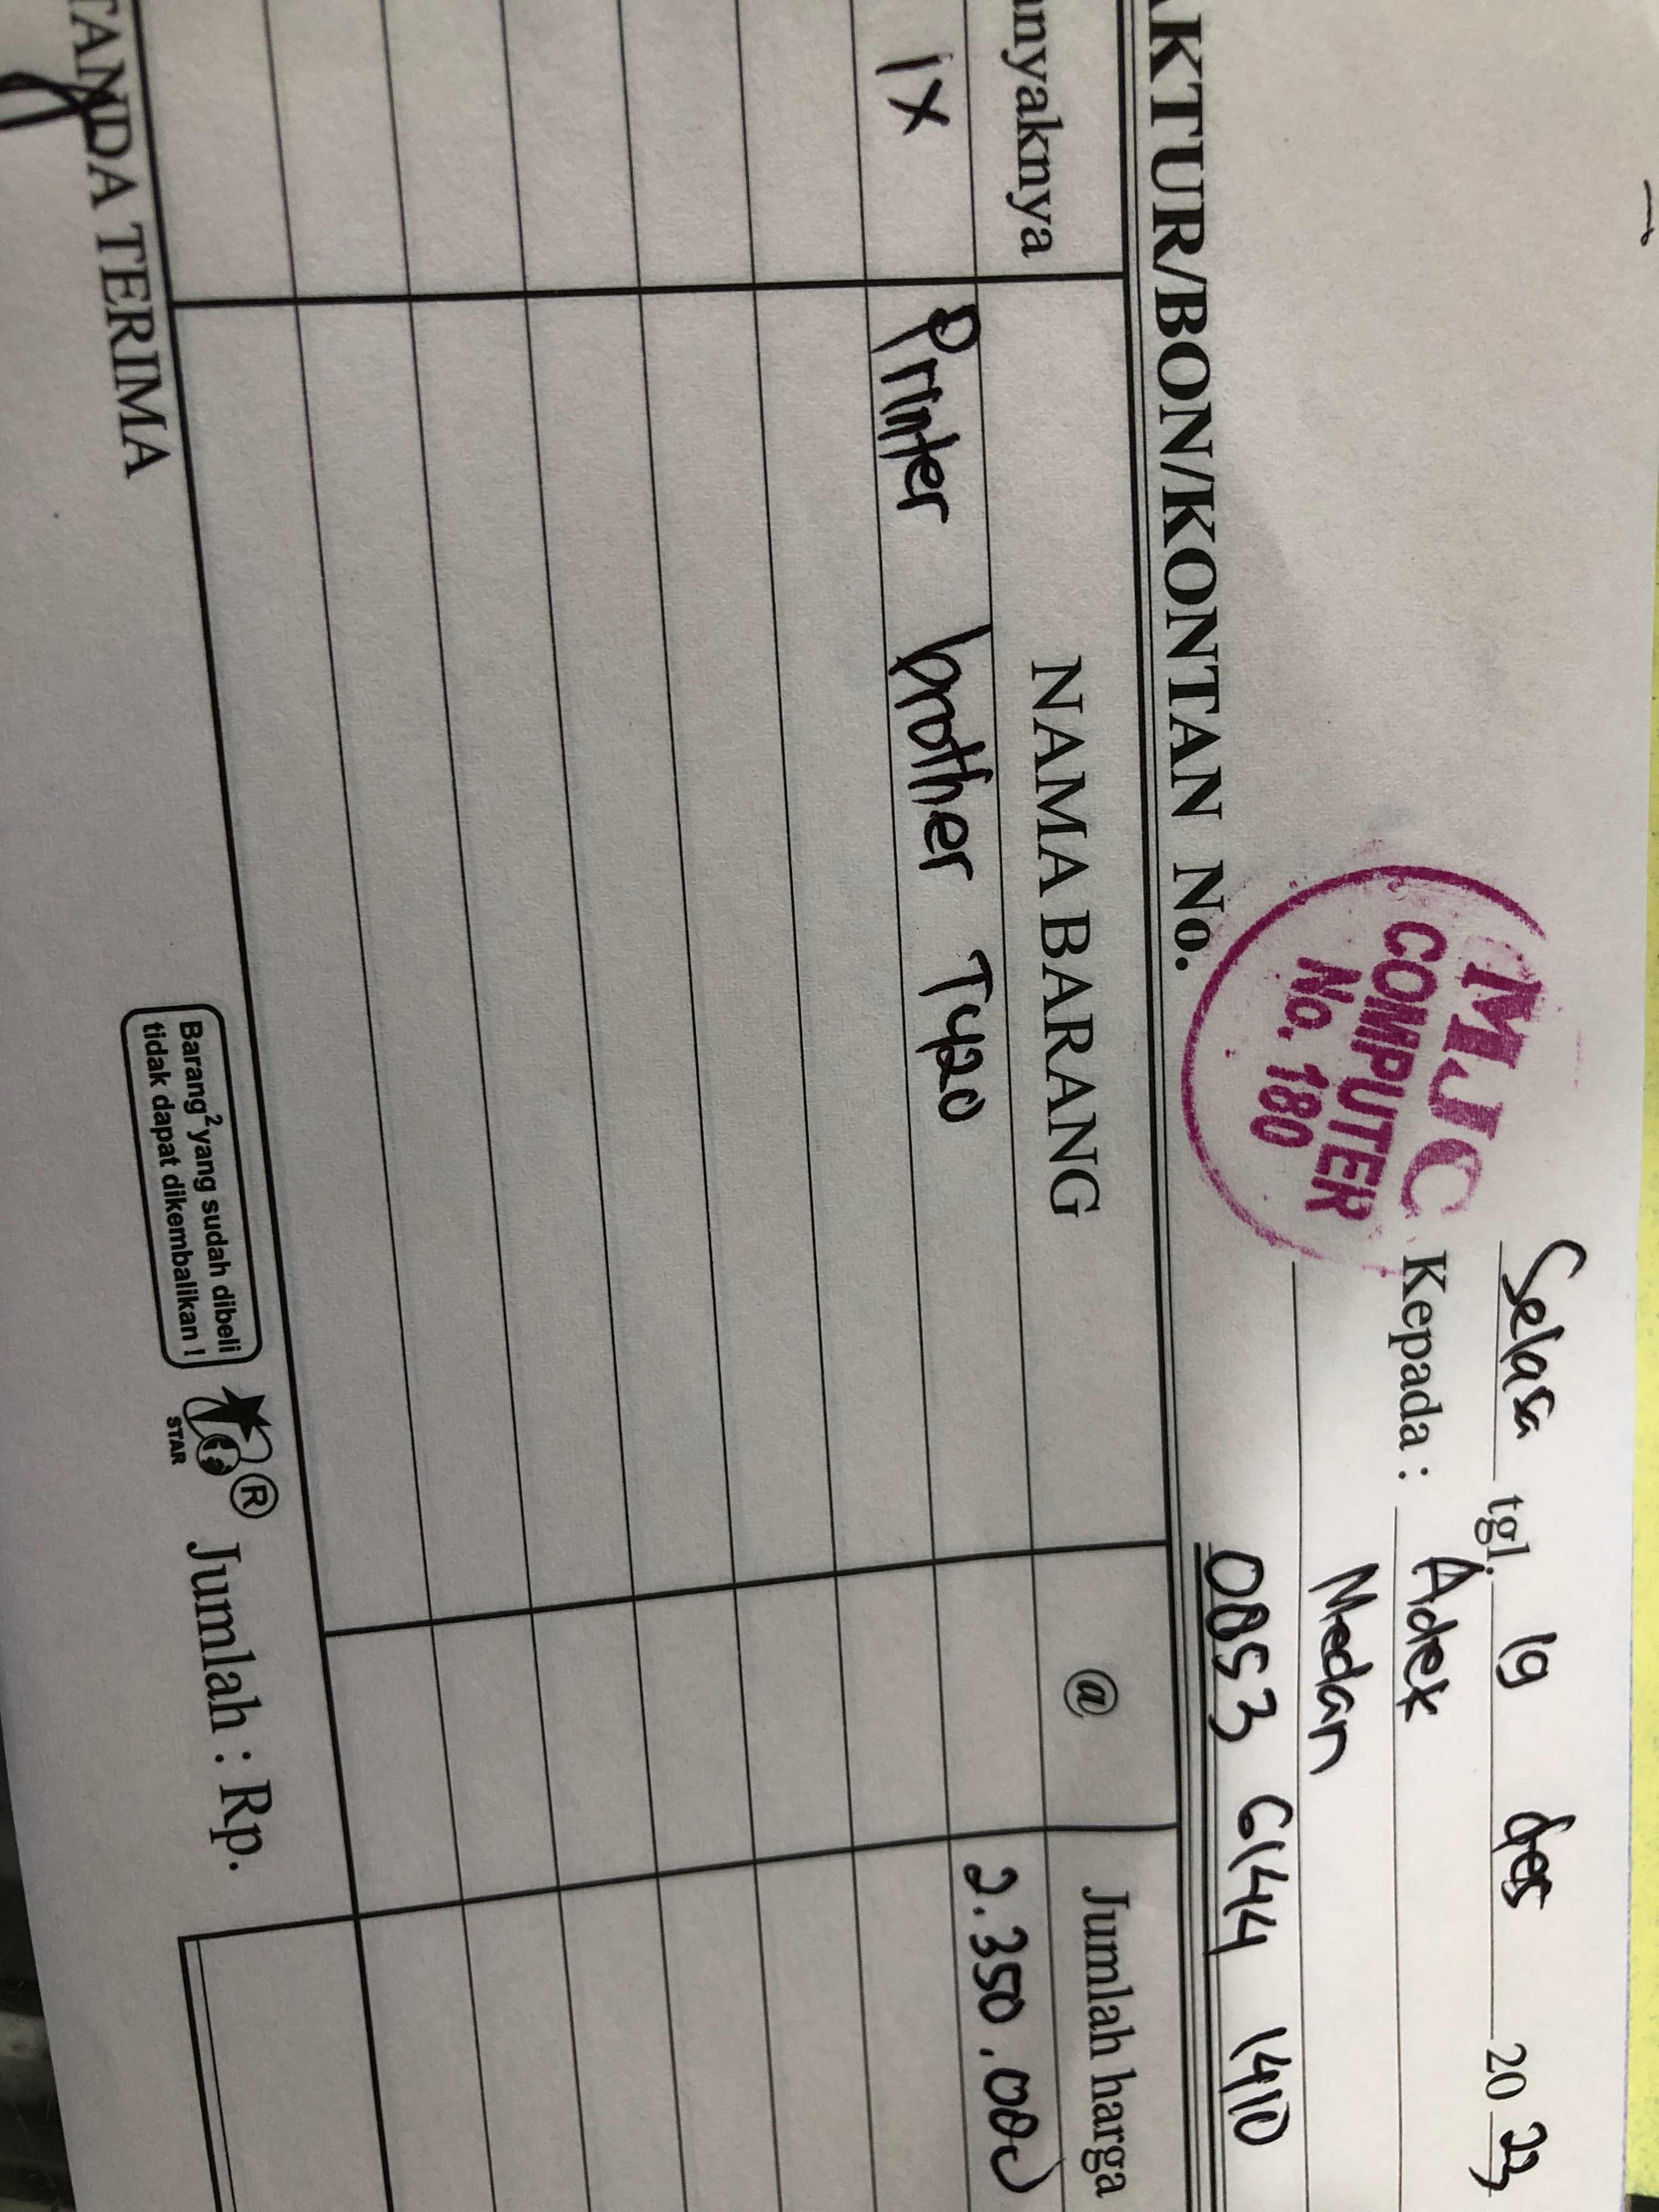 Selasa tgl. 19 des 2023
MJC
COMPUTER
No. 180
Kepada : Adek
Medan
0853 6144 1410
AKTUR/BON/KONTAN No.
nyaknya NAMA BARANG @ Jumlah harga
1x Printer brother T420 2.350.000
TANDA TERIMA
Barang² yang sudah dibeli
tidak dapat dikembalikan !
STAR
®
Jumlah : Rp.